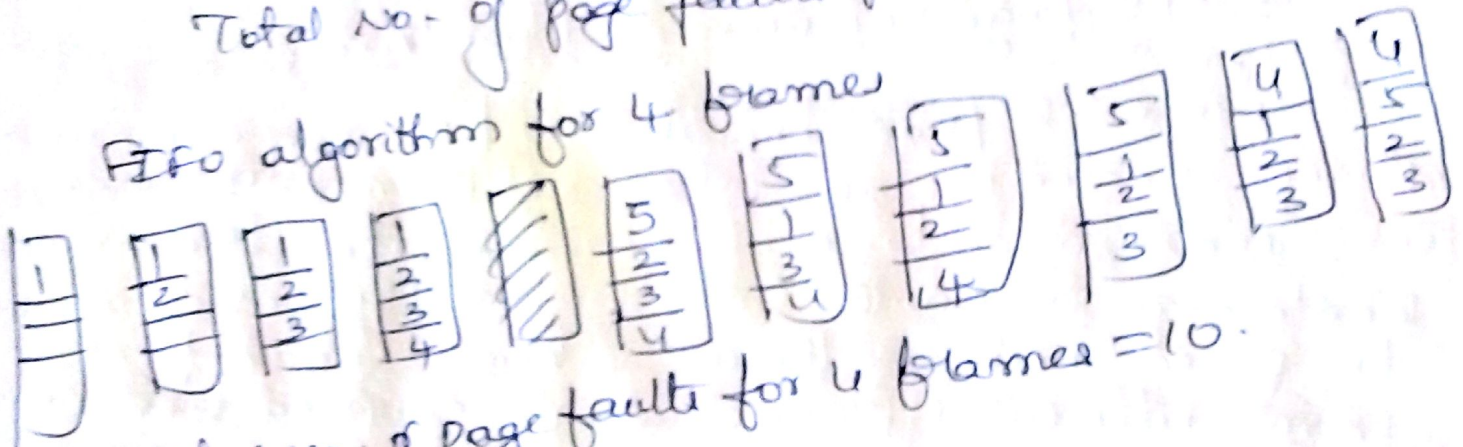 Total No. of page
FIFO algorithm for 4 frames
1
1 2
1 2 3
1 2 3 4
5 2 3 4
5 1 3 4
5 1 2 4
5 1 2 3
4 1 2 3
4 5 2 3
of page faults for 4 frames = 10.